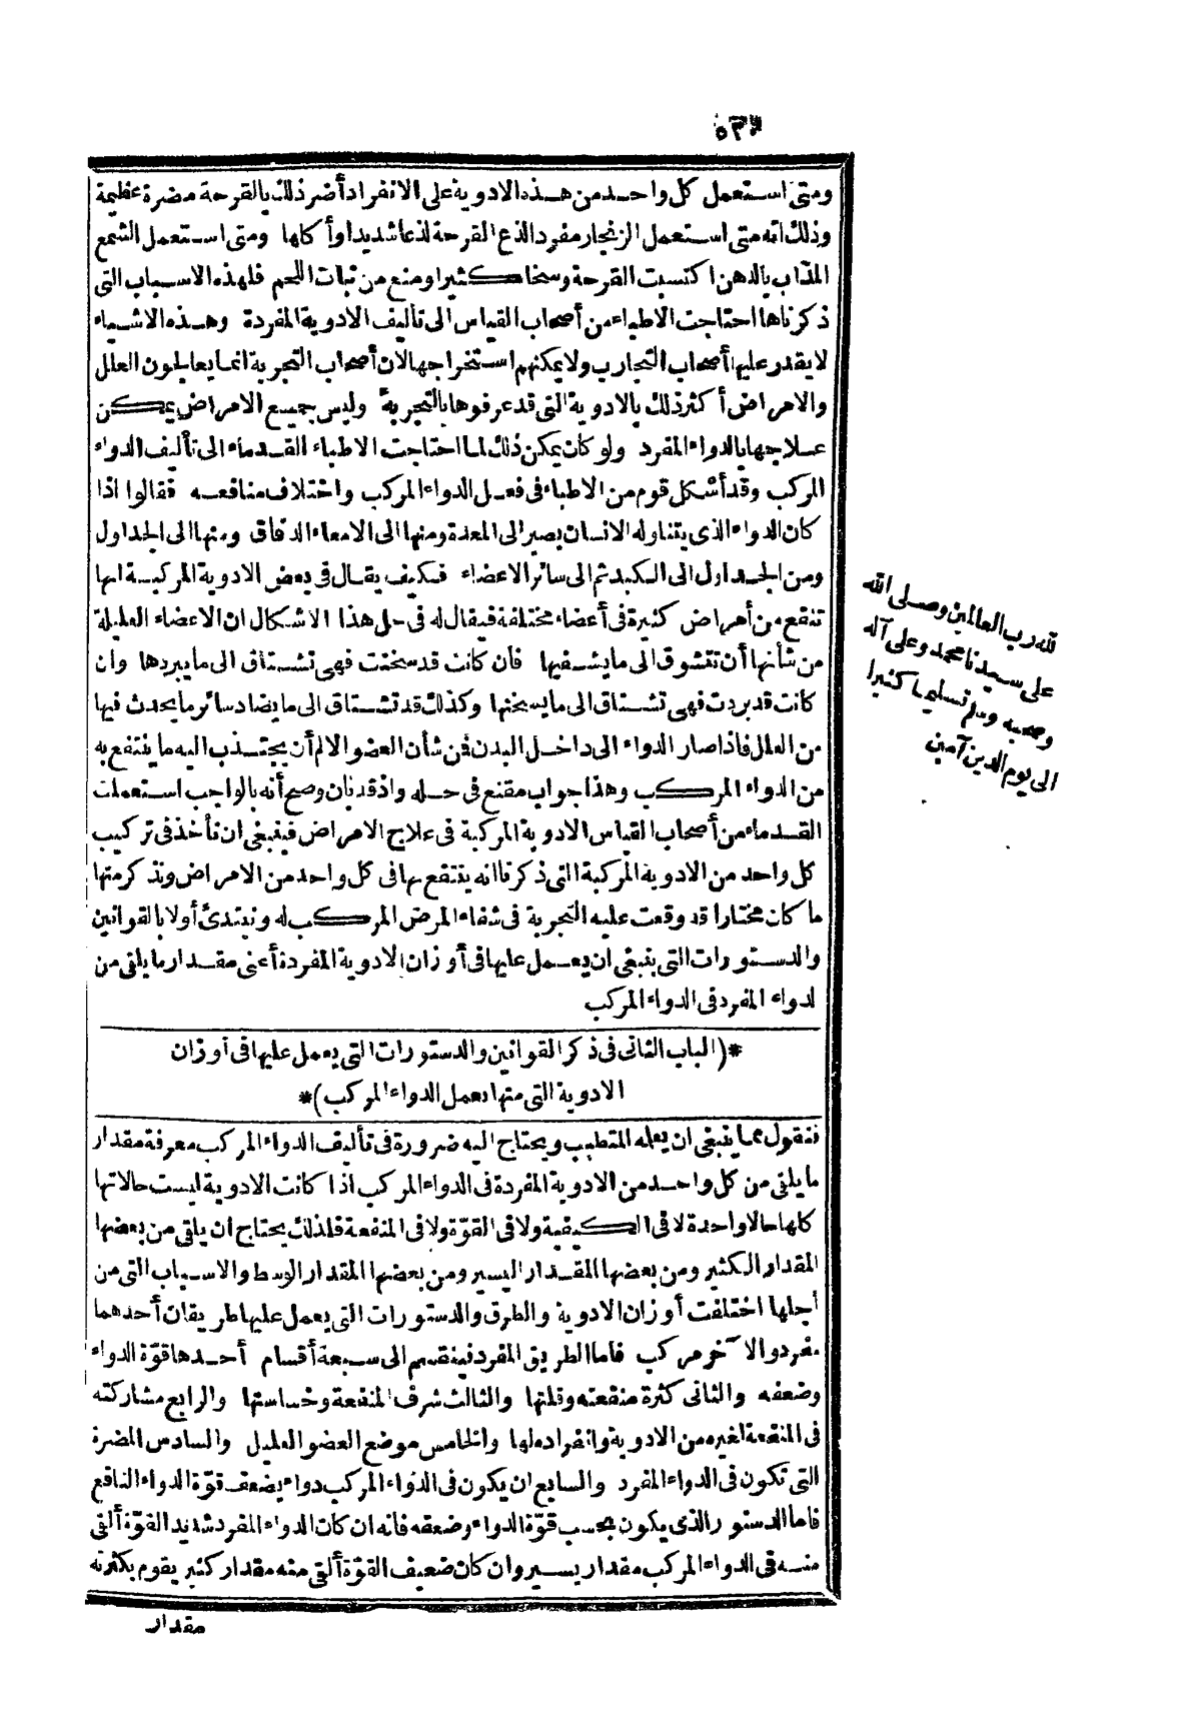 ومتى استعمل كل واحد من هذه الادوية على الانفراد أضر ذلك بالقرحة مضرة عظيمة
وذلك انه متى استعمل الزنجار مفردا لذع القرحة لذعا شديدا وأكلها ومتى استعمل الشمع
المذاب بالدهن اكتسبت القرحة وسخا كثيرا ومنع من نبات اللحم فلهذه الاسباب التى
ذكرناها احتاجت الاطباء من أصحاب القياس الى تأليف الادوية المفردة وهذه الاشياء
لا يقدر عليها أصحاب التجارب ولا يمكنهم استخراجها لان أصحاب التجربة انما يعالجون العلل
والامراض أكثر ذلك بالادوية التى قد عرفوها بالتجربة وليس جميع الامراض يمكن
علاجها بالدواء المفرد ولو كان يمكن ذلك لما احتاجت الاطباء القدماء الى تأليف الدواء
المركب وقد أشكل قوم من الاطباء فى فعل الدواء المركب واختلاف منافعه فقالوا اذا
كان الدواء الذى يتناوله الانسان يصير الى المعدة ومنها الى الامعاء الدقاق ومنها الى الجداول
ومن الجداول الى الكبد ثم الى سائر الاعضاء فكيف يقال فى بعض الادوية المركبة انها
تنفع من أمراض كثيرة فى أعضاء مختلفة فيقال له فى حل هذا الاشكال ان الاعضاء العليلة
من شأنها أن تتشوق الى ما يشفيها فان كانت قد سخنت فهى تشتاق الى ما يبردها وان
كانت قد بردت فهى تشتاق الى ما يسخنها وكذلك قد تشتاق الى ما يضاد سائر ما يحدث فيها
من العلل فاذا صار الدواء الى داخل البدن فمن شأن العضو الالم أن يجتذب اليه ما ينتفع به
من الدواء المركب وهذا جواب مقنع فى حله واذ قد بان وصح أنه بالواجب استعملت
القدماء من أصحاب القياس الادوية المركبة فى علاج الامراض فينبغى ان نأخذ فى تركيب
كل واحد من الادوية المركبة التى ذكرنا انه ينتفع بها فى كل واحد من الامراض ونذكر منها
ما كان مختارا قد وقعت عليه التجربة فى شفاء المرض المركب له ونبتدئ أولا بالقوانين
والدستورات التى ينبغى ان يعمل عليها فى أوزان الادوية المفردة أعنى مقدار ما يلقى من
لدواء المفرد فى الدواء المركب
*(الباب الثانى فى ذكر القوانين والدستورات التى يعمل عليها فى أوزان
الادوية التى منها يعمل الدواء المركب)*
فنقول مما ينبغى ان يعلمه المتطبب ويحتاج اليه ضرورة فى تأليف الدواء المركب معرفة مقدار
ما يلقى من كل واحد من الادوية المفردة فى الدواء المركب اذا كانت الادوية ليست حالاتها
كلها حالا واحدة لا فى الكيفية ولا فى القوّة ولا فى المنفعة فلذلك يحتاج ان يلقى من بعضها
المقدار الكثير ومن بعضها المقدار اليسير ومن بعضها المقدار الوسط والاسباب التى من
أجلها اختلفت أوزان الادوية والطرق والدستورات التى يعمل عليها طريقان أحدهما
مفرد والآخر مركب فاما الطريق المفرد فينقسم الى سبعة أقسام أحدها قوّة الدواء
وضعفه والثانى كثرة منفعته وقلتها والثالث شرف المنفعة وخساستها والرابع مشاركته
فى المنفعة لغيره من الادوية وانفراده لها والخامس موضع العضو العليل والسادس المضرة
التى تكون فى الدواء المفرد والسابع ان يكون فى الدواء المركب دواء يضعف قوّة الدواء النافع
فاما الدستور الذى يكون بحسب قوّة الدواء وضعفه فانه ان كان الدواء المفرد شديد القوّة ألقى
منه فى الدواء المركب مقدار يسير وان كان ضعيف القوّة ألقى منه مقدار كثير يقوم بكثرته
مقدار
لله رب العالمين وصلى الله
على سيدنا محمد وعلى آله
وصحبه وسلم تسليما كثيرا
الى يوم الدين آمين